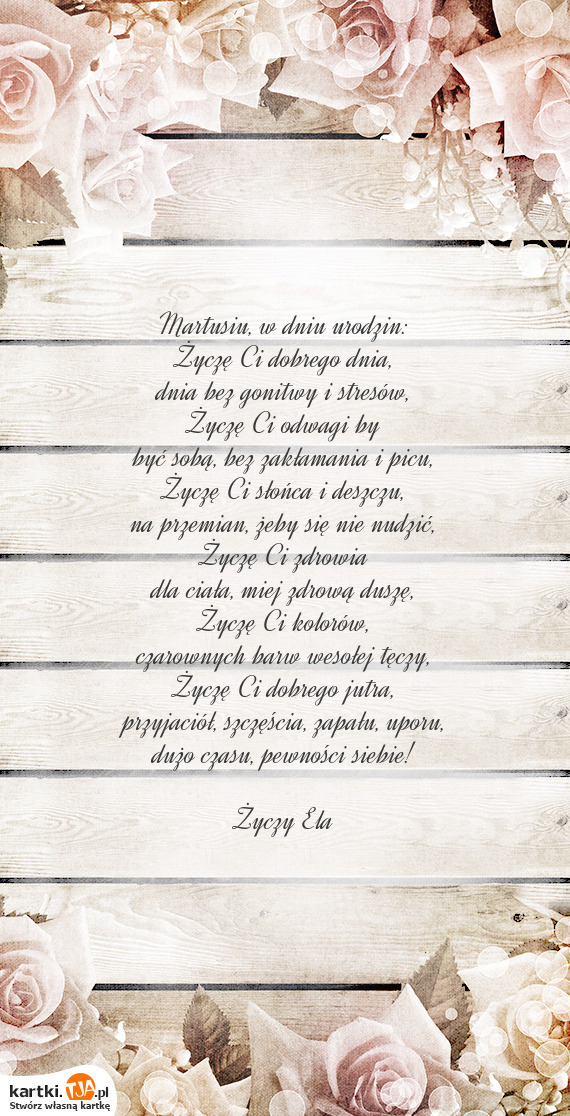 Martusiu, w dniu urodzin:
Życzę Ci dobrego dnia,
dnia bez gonitwy i stresów,
Życzę Ci odwagi by
być sobą, bez zakłamania i picu,
Życzę Ci słońca i deszczu,
na przemian, żeby się nie nudzić,
Życzę Ci zdrowia
dla ciała, miej zdrową duszę,
Życzę Ci kolorów,
czarownych barw wesołej tęczy,
Życzę Ci dobrego jutra,
przyjaciół, szczęścia, zapału, uporu,
dużo czasu, pewności siebie!
Życzy Ela
kartki.TJA.pl
Stwórz własną kartkę